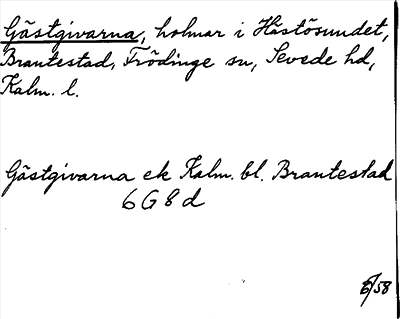 Gästgivarna, holmar i Hästösundet,
Brantestad, Frödinge sn, Sevede hd,
Kalm. l.
Gästgivarna ek Kalm. bl. Brantestad
6 G 8 d
6/58